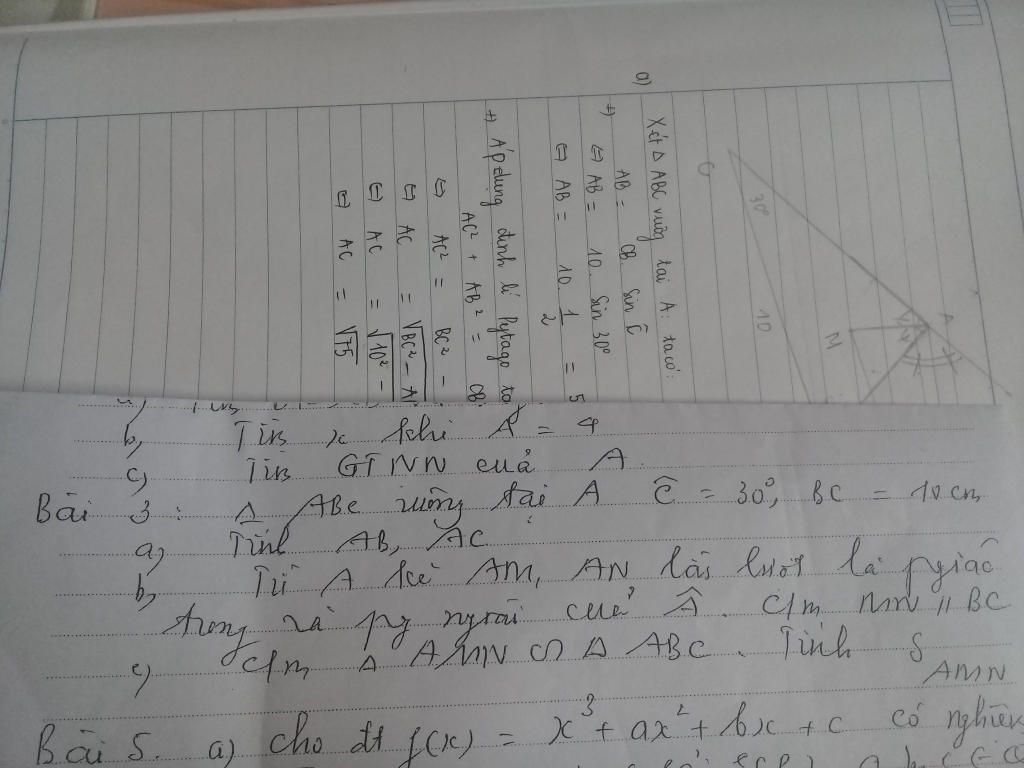 C
30°
10
A
M
a)
Xét Δ ABC vuông tại A. ta có:
+) AB = CB. sin Ĉ
⇔ AB = 10. sin 30°
⇔ AB = 10. 1/2 = 5
+) Áp dụng định lí Pytago ta
AC² + AB² = CB
⇔ AC² = BC² -
⇔ AC = √BC² - A
⇔ AC = √10² -
⇔ AC = √75
b, Tìm x khi A = 4
c, Tìm GTNN của A.
Bài 3: Δ ABC vuông tại A Ĉ = 30°, BC = 10 cm
a, Tính AB, AC
b, Từ A kẻ AM, AN lần lượt là pgiác
trong và pg ngoài của Â. C/m MN // BC
c, C/m Δ AMN ∽ Δ ABC. Tính S AMN
Bài 5. a) cho đt f(x) = x³ + ax² + bx + c có nghiệm